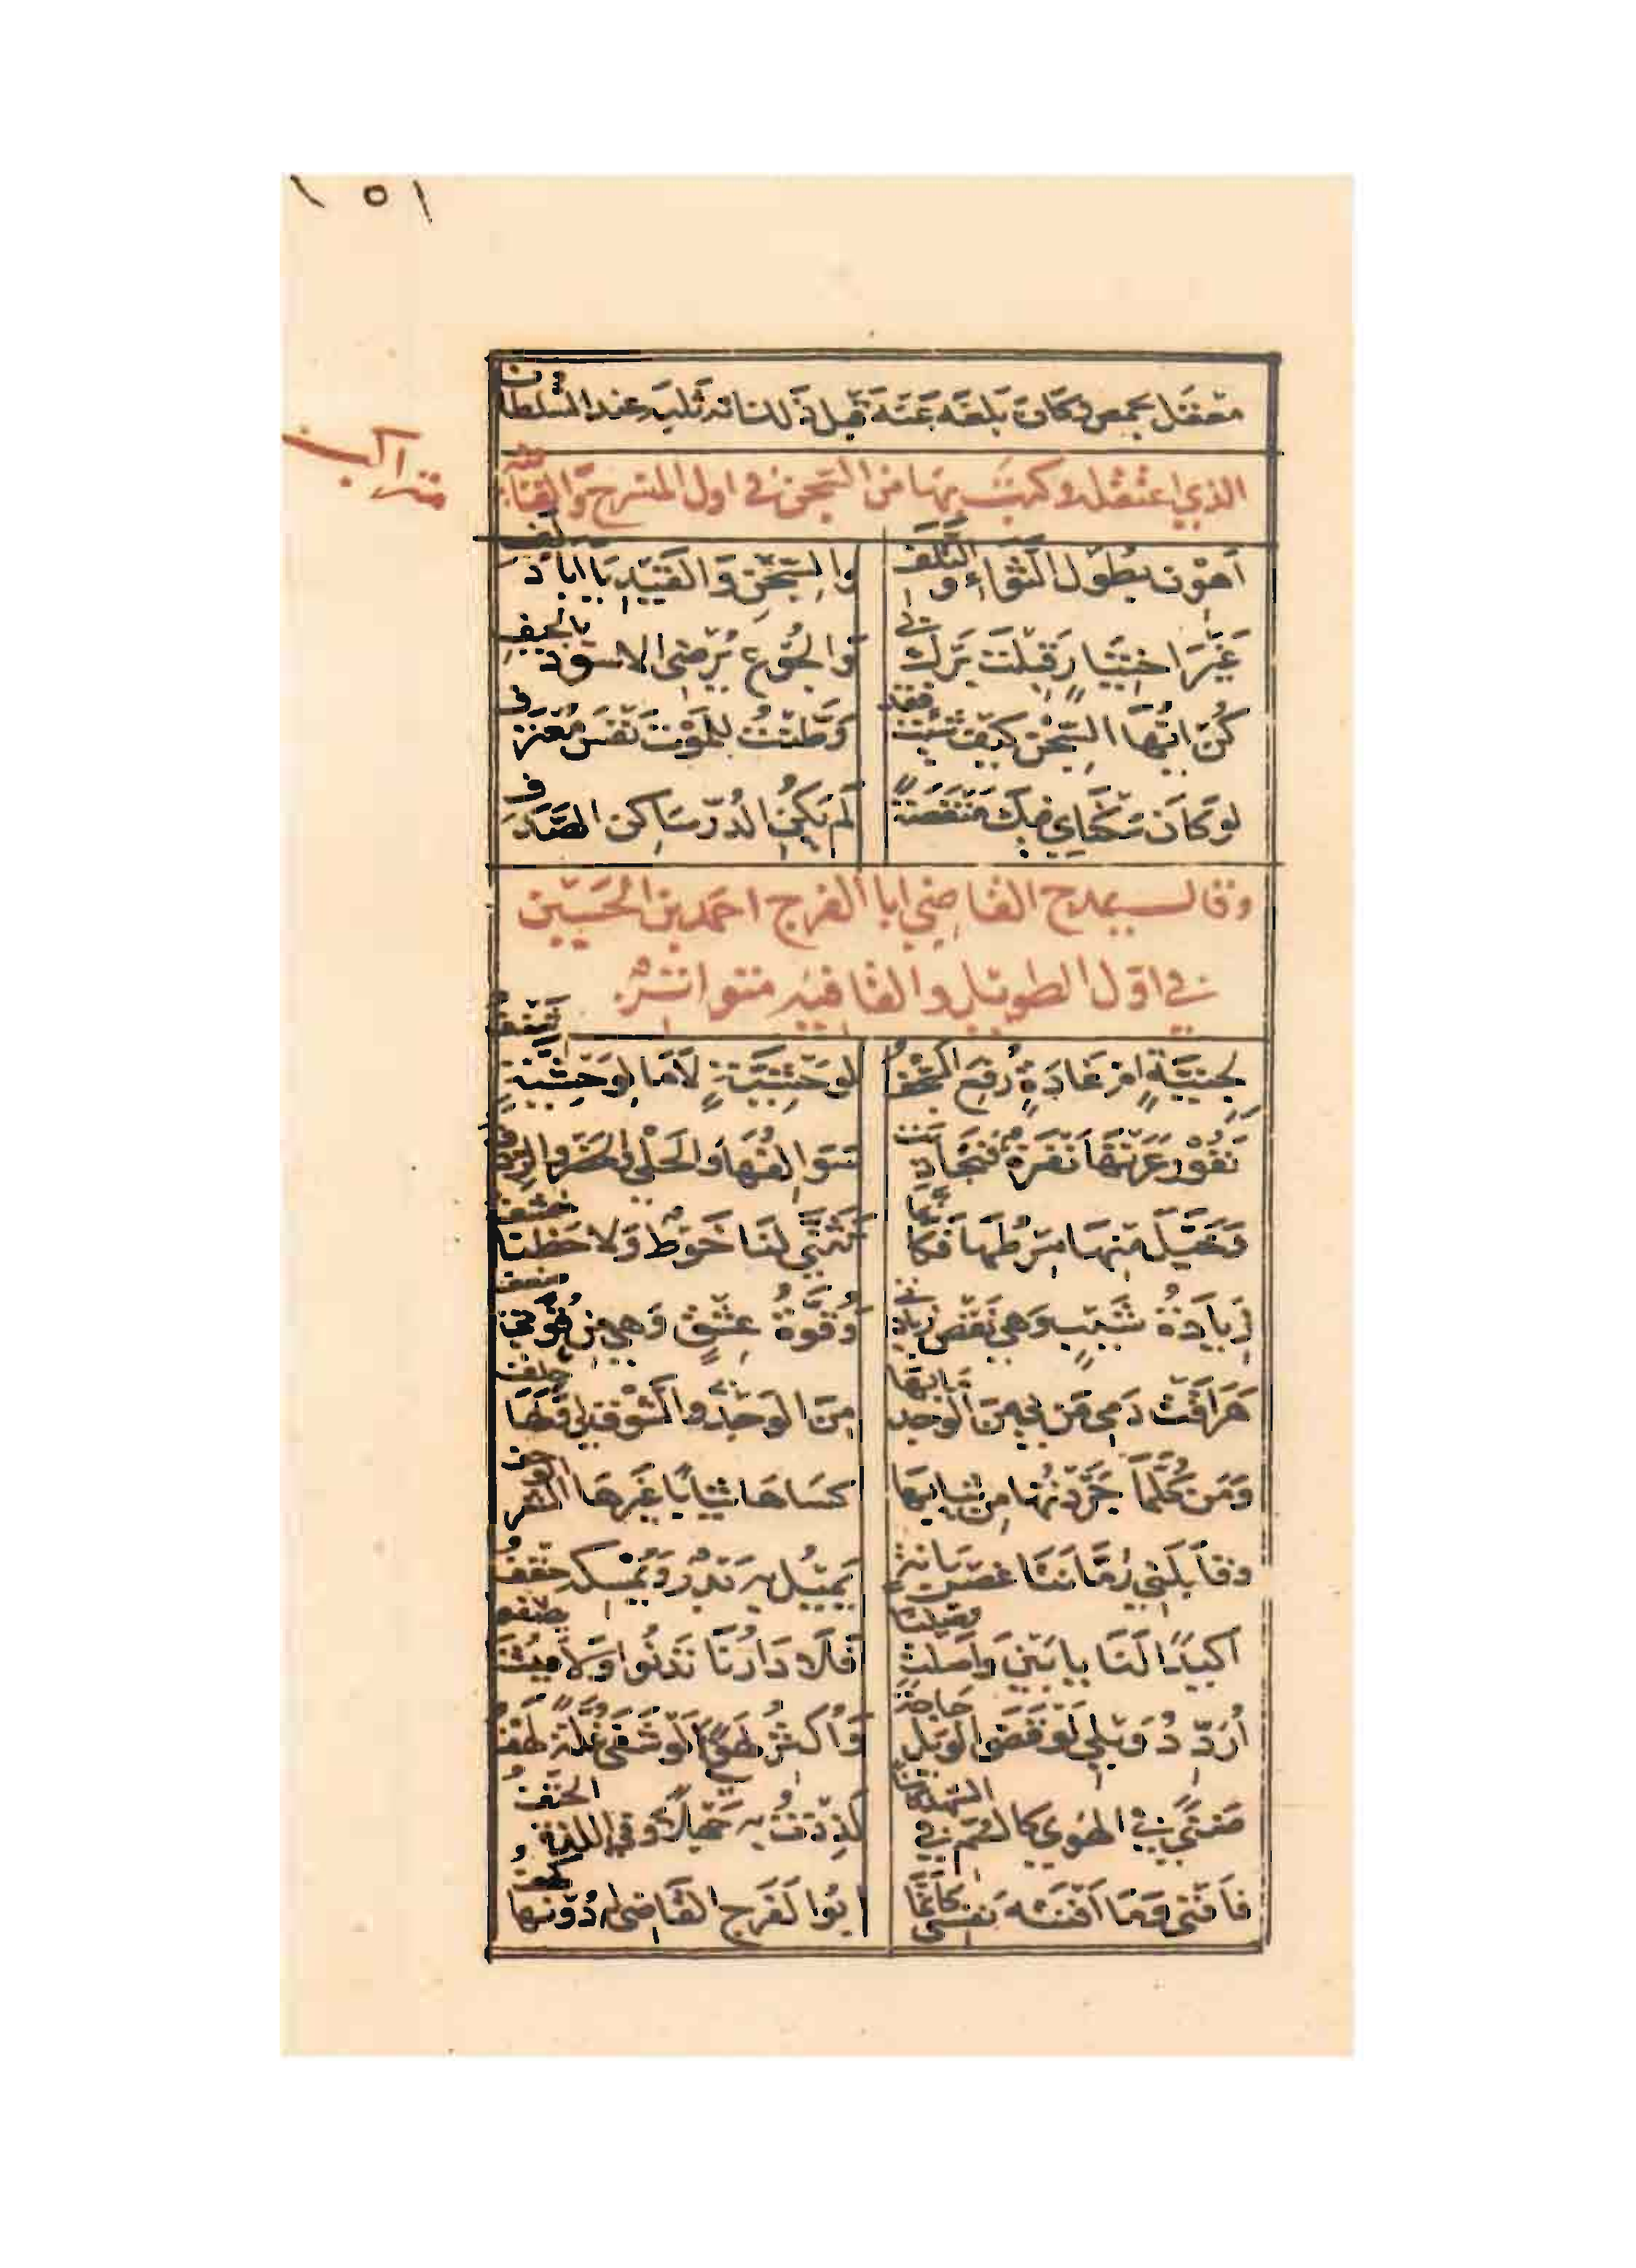 ١٥١
معتقل بحمص وكان بلغه عنه قبل ذلك انه ثلبه عند السلطان
الذي اعتقله وكتب بها من السجن في اول المنسرح والقافية
متراكب
اَهْوِن بطُول الثَّوَاءِ والتَّلَفِ والسِّجْنِ وَالقَيْدِ يَا ابَا دُلَفِ
غَيْرَ اخْتِيَارٍ قَبِلْتُ بِرَّكَ لي وَالجُوعُ يُرْضِي الاسودَ بالجِيَفِ
كُنْ ايُّهَا السِّجْن كيفَ شئتَ فقد وَطَّنْتُ للمَوْتِ نَفْسَ مُعْتَرِفِ
لو كَانَ سُكْنَاي فيكَ مَنْقَصَةً لَم يَكُنِ الدُّرّ سَاكن الصَّدَفِ
وقال يمدح القاضي ابا الفرج احمد بن الحسين
في اول الطويل والقافيه متواتر
لِجِنِّيَّةٍ ام غَادَةٍ رُفِعَ السَّجْفُ لوَحْشِيَّةٍ لَا مَا لِوَحْشِيَّةٍ شَنْفُ
نَفُورٌ عَرَتْهَا نَفْرَةٌ فَتَجَاذبت سَوَالِفُهَا وَالحَلْيُ والخَصْرُ والرِّدْفُ
وَخَيَّلَ مِنْهَا مِرْطُهَا فَكَأَنَّمَا تَثَنَّى لَنَا خُوطٌ وَلَا حَظَنَا خِشْفُ
زِيَادَةُ شَيْبٍ وَهِي نَقْصُ زيادتي وَقُوَّةُ عِشْقٍ وَهِي مِن قُوَّتي ضعف
هَرَاقَتْ دَمي مَن بي مِنَ الوَجدِ مَا بِهَا مِنَ الوَجْدِ والشَّوْق لي ولَهَا حِلْفُ
وَمَن كُلَّمَا جَرَّدْتُهَا مِن ثيابِهَا كسَاهَا ثيَابًا غَيْرَهَا الشَّعَرُ الوَحْفُ
وقابَلَني رُمَّانَتَا غُصْنِ بَانَةٍ يَميلُ به بَدْرٌ وَيُمْسِكه حِقْفُ
اَكَيْدًا لَنَا يا بَيْنُ وَاصَلْتَ وصْلَنَا فَلَا دَارُنَا تَدْنُوا وَلَا عَيْشُنَا يصفو
اُرَدِّدُ وَيْلي لَوْ قَضَى الوَيْلُ حَاجَةً وَاُكثِرُ لَهْفي لَوْ شَفَى غُلَّةً لَهْفُ
ضَنًى في الهَوى كالسُّمِّ في الشَّهْدِ كامِنًا لَذِذْتُ بِهِ جَهْلًا وَفي اللَّذَّةِ الحَتْفُ
فَاَفْنَى وَمَا اَفْنَتْه نَفْسي كَأَنَّمَا ابُوا الفَرَج القَاضي له دُونَهَا كهفُ